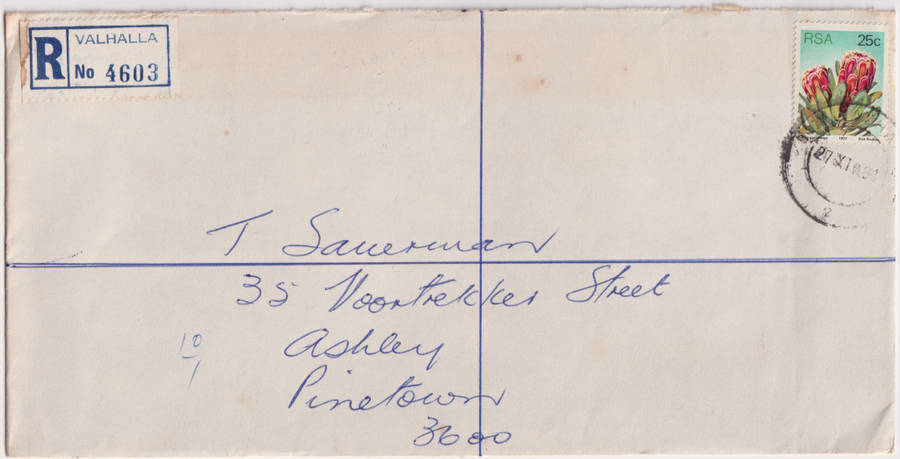 R VALHALLA
No 4603
RSA 25c
T Sauerman
35 Voortrekker Street
Ashley
Pinetown
3600
10
1